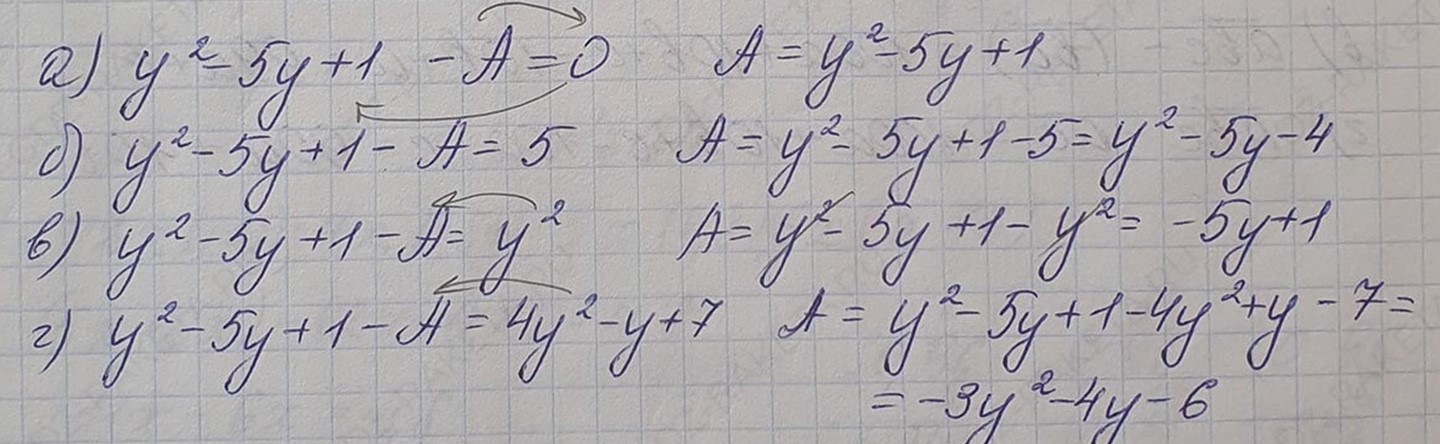 а) y² - 5y + 1 - A = 0 A = y² - 5y + 1
б) y² - 5y + 1 - A = 5 A = y² - 5y + 1 - 5 = y² - 5y - 4
в) y² - 5y + 1 - A = y² A = y² - 5y + 1 - y² = -5y + 1
г) y² - 5y + 1 - A = 4y² - y + 7 A = y² - 5y + 1 - 4y² + y - 7 =
= -3y² - 4y - 6